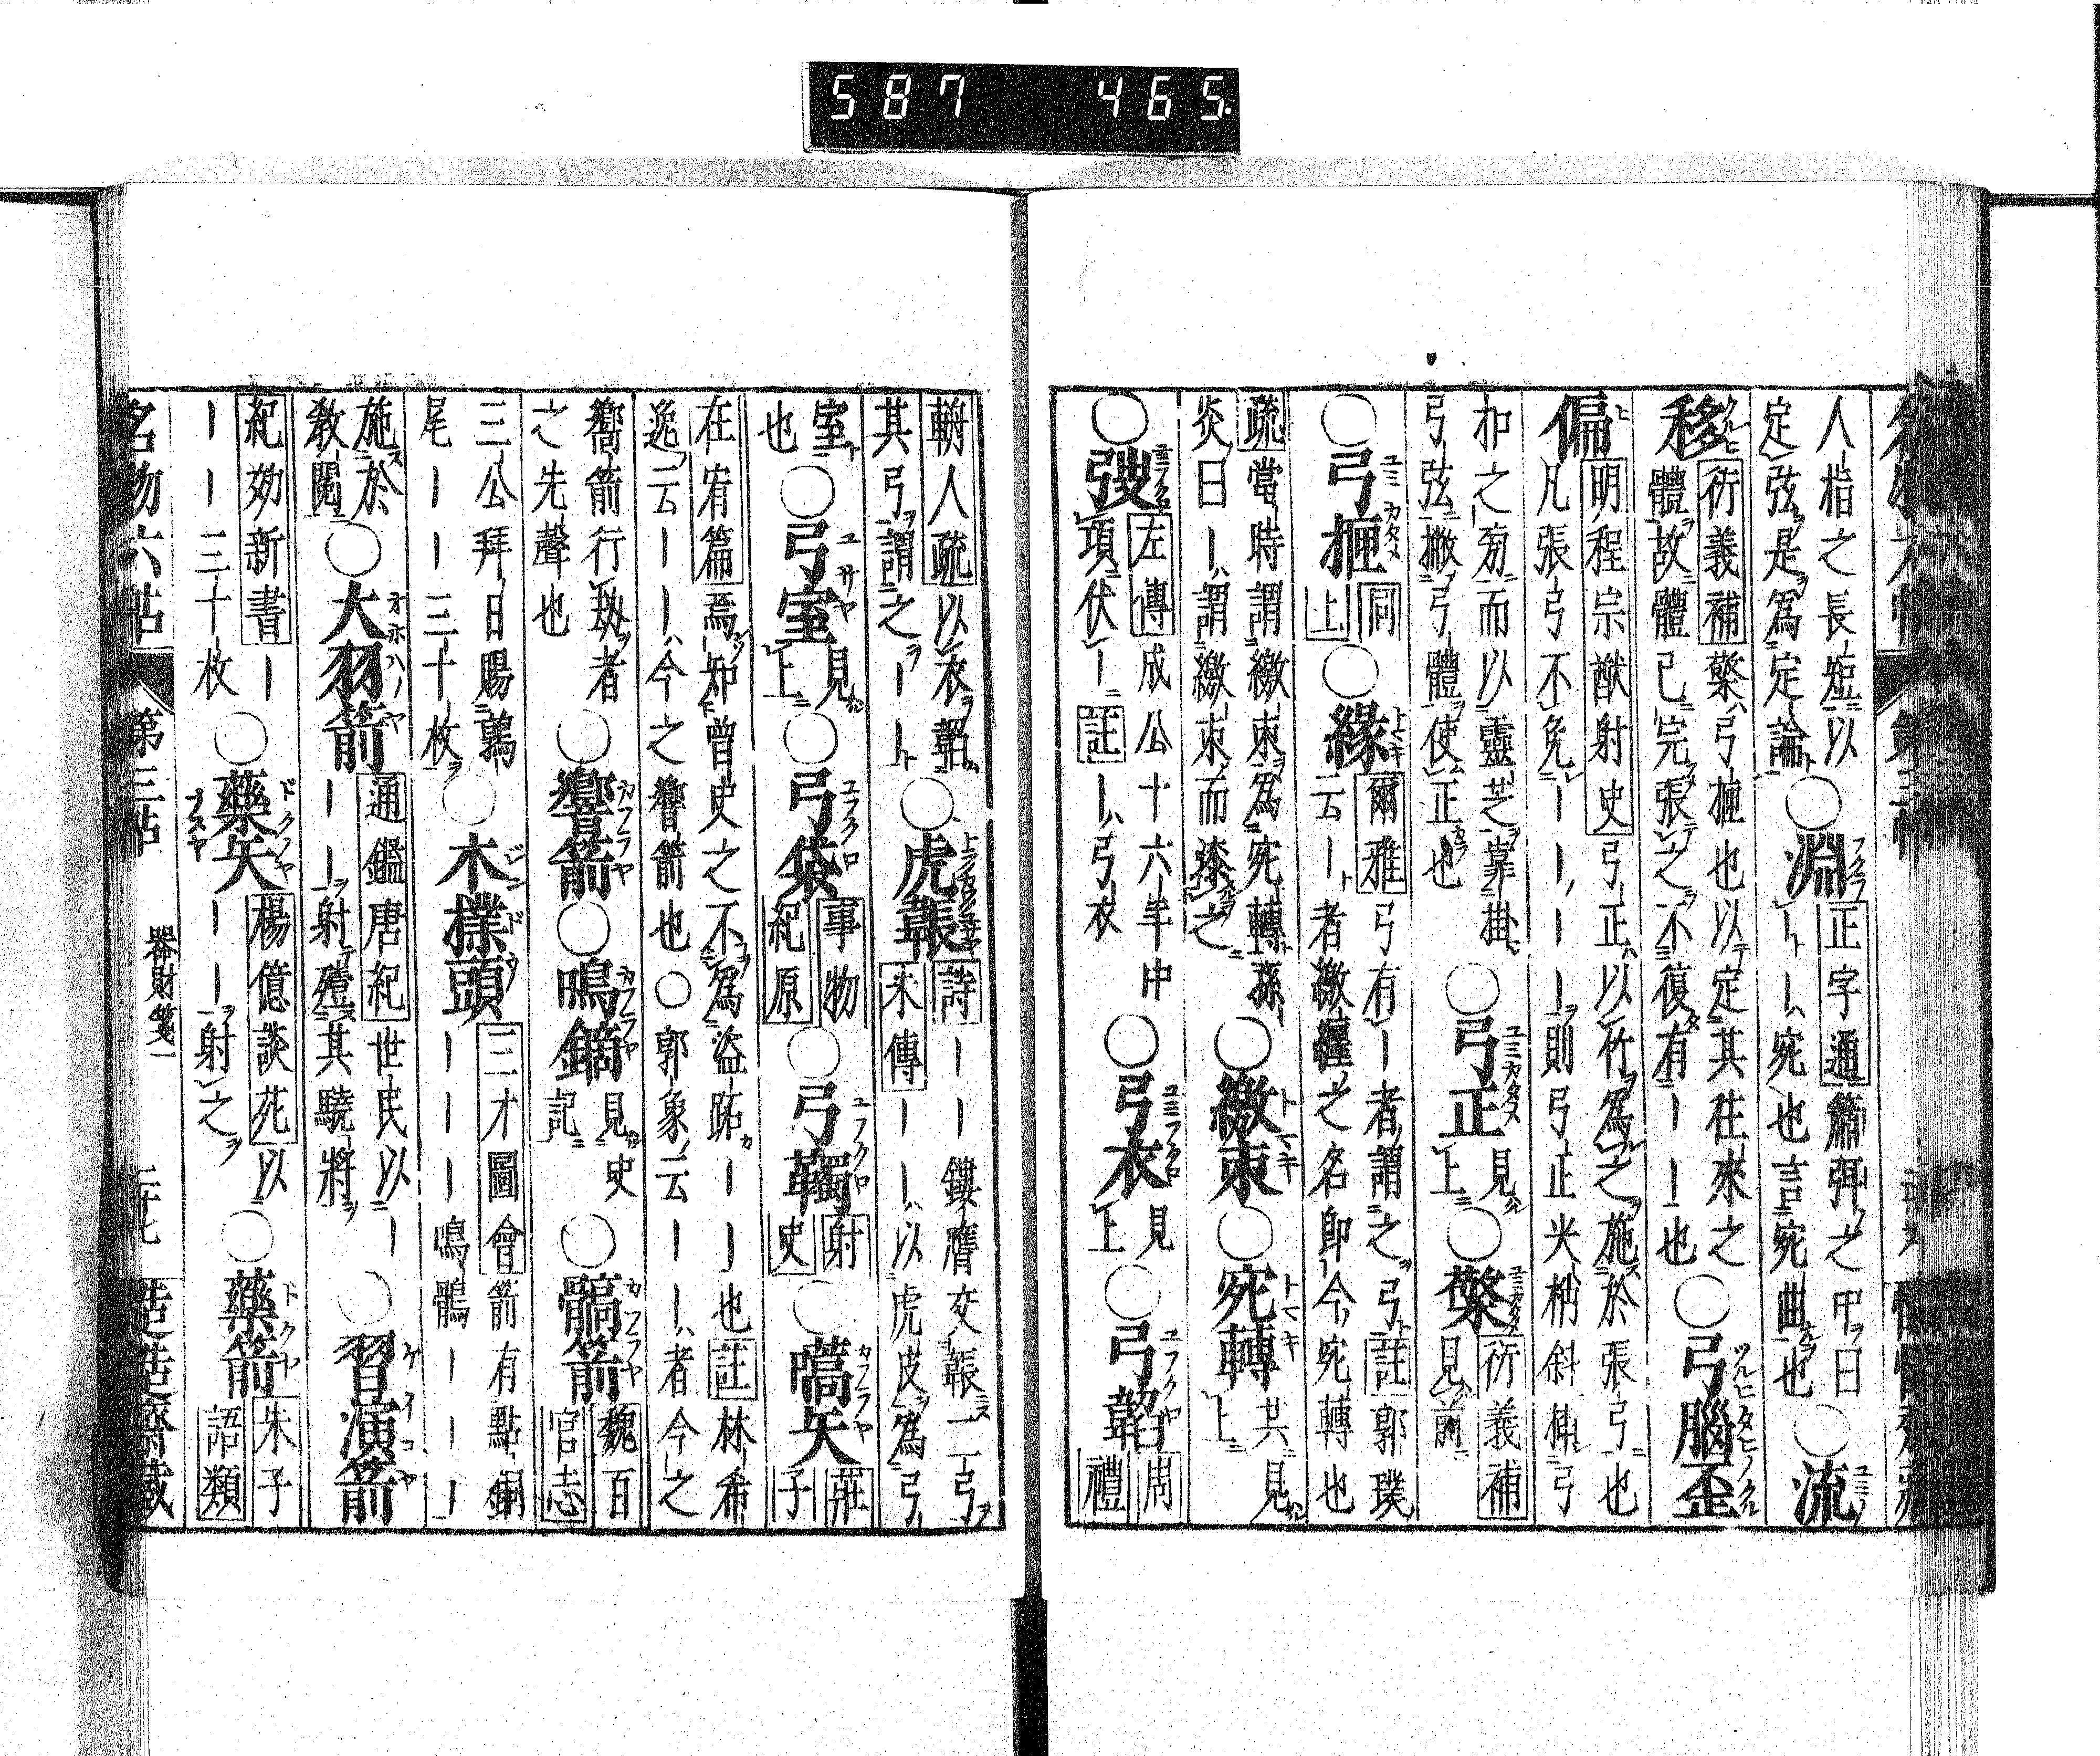 587 465.
人指之長短以
定弦是爲定論
○淵
正字通
簫弭之中曰
ーー宛也言宛曲也
○流
移
衍義補
檠弓柙也以定其往來之
體故體已完張之不復有ーー也
○弓腦歪
偏
明程宗猷射史
弓正以竹爲之施於張弓也
凡張弓不免ーーーー則弓正夾梢斜插弓
和之旁而以靈芝靠掛
弓弦撇弓體使正也
○弓正
見上
○檠
衍義補
見前
○弓柙
同上
○緣
爾雅
弓有ー者謂之弓
註
郭璞
云ー者繳纏之名即今宛轉也
疏
當時謂繳束爲宛轉孫
炎曰ー謂繳束而漆之
○繳束
○宛轉
共見上
○弢
左傳
成公十六年中
項伏ー
註
ー弓衣
○弓衣
見上
○弓韜
周禮
輈人疏
以衣韜
其弓謂之ーー
○虎韔
詩
ーー鏤膺交韔二弓
朱傳
ーー以虎皮爲弓
室也
○弓室
見上
○弓袋
事物紀原
○弓韣
射史
○嚆矢
莊子
在宥篇
焉知曾史之不爲盜跖ーー也
註
林希
逸云ーー今之響箭也○郭象云ーー者今之
嚮箭行劫者
之先聲也
○響箭
○鳴鏑
見史記
○髇箭
魏百官志
三公拜日賜鶉
尾ーー三十枚
○木撲頭
三才圖會
箭有點銅
ーーーー鳴鶻ーーー
施於
敎閱
○大羽箭
通鑑唐紀
世民以ー
ーー射殪其驍將
○習演箭
紀効新書
ー
ーー三十枚
○藥矢
楊億談苑
以
ーー射之
○藥箭
朱子語類
名物六帖
第三帖
器財箋一
二十七